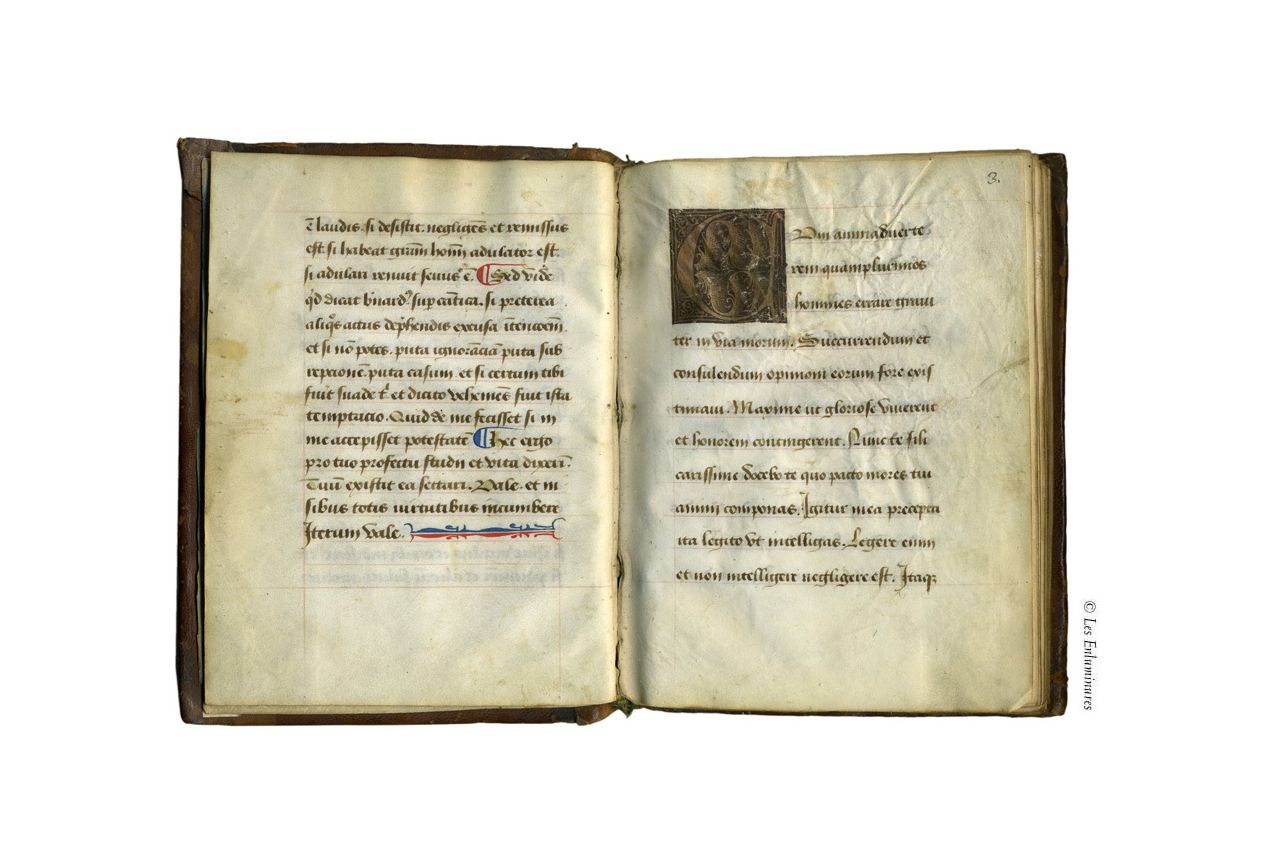 t laudis. si desistit. negligẽs et remissus
est. si habeat gram̃ homĩ adulator est.
si adulari renuit seuus ẽ. Sed vide
qd dicat b'nard9 sup cantica. si preterea
aliqs actus dep̃hendis excusa ĩtencoem̃.
et si nõ potes. puta ignorãciã puta sub
repcionẽ. puta casum. et si certum tibi
fuit suade t' et dicito vehemẽs fuit ista
temptacio. Quid de me fecisset si in
me accepisset potestatẽ Hec ergo
pro tuo profectu studii et vita dixerĩ.
Tuũ existit ea sectari. Vale. et in
sibus totis uirtutibus incumbere
Iterum vale.
3.
Cum animaduerte
rem quamplurimos
homines errare graui
ter in via morum. Succurrendum et
consulendum opinioni eorum fore exis
timaui. Maxime ut gloriose viuerent
et honorem contingerent. Nunc te fili
carissime docebo te quo pacto mores tui
animi componas. Igitur mea precepta
ita legito vt intelligas. Legere enim
et non intelligere negligere est. Itaqꝫ
© Les Enluminures